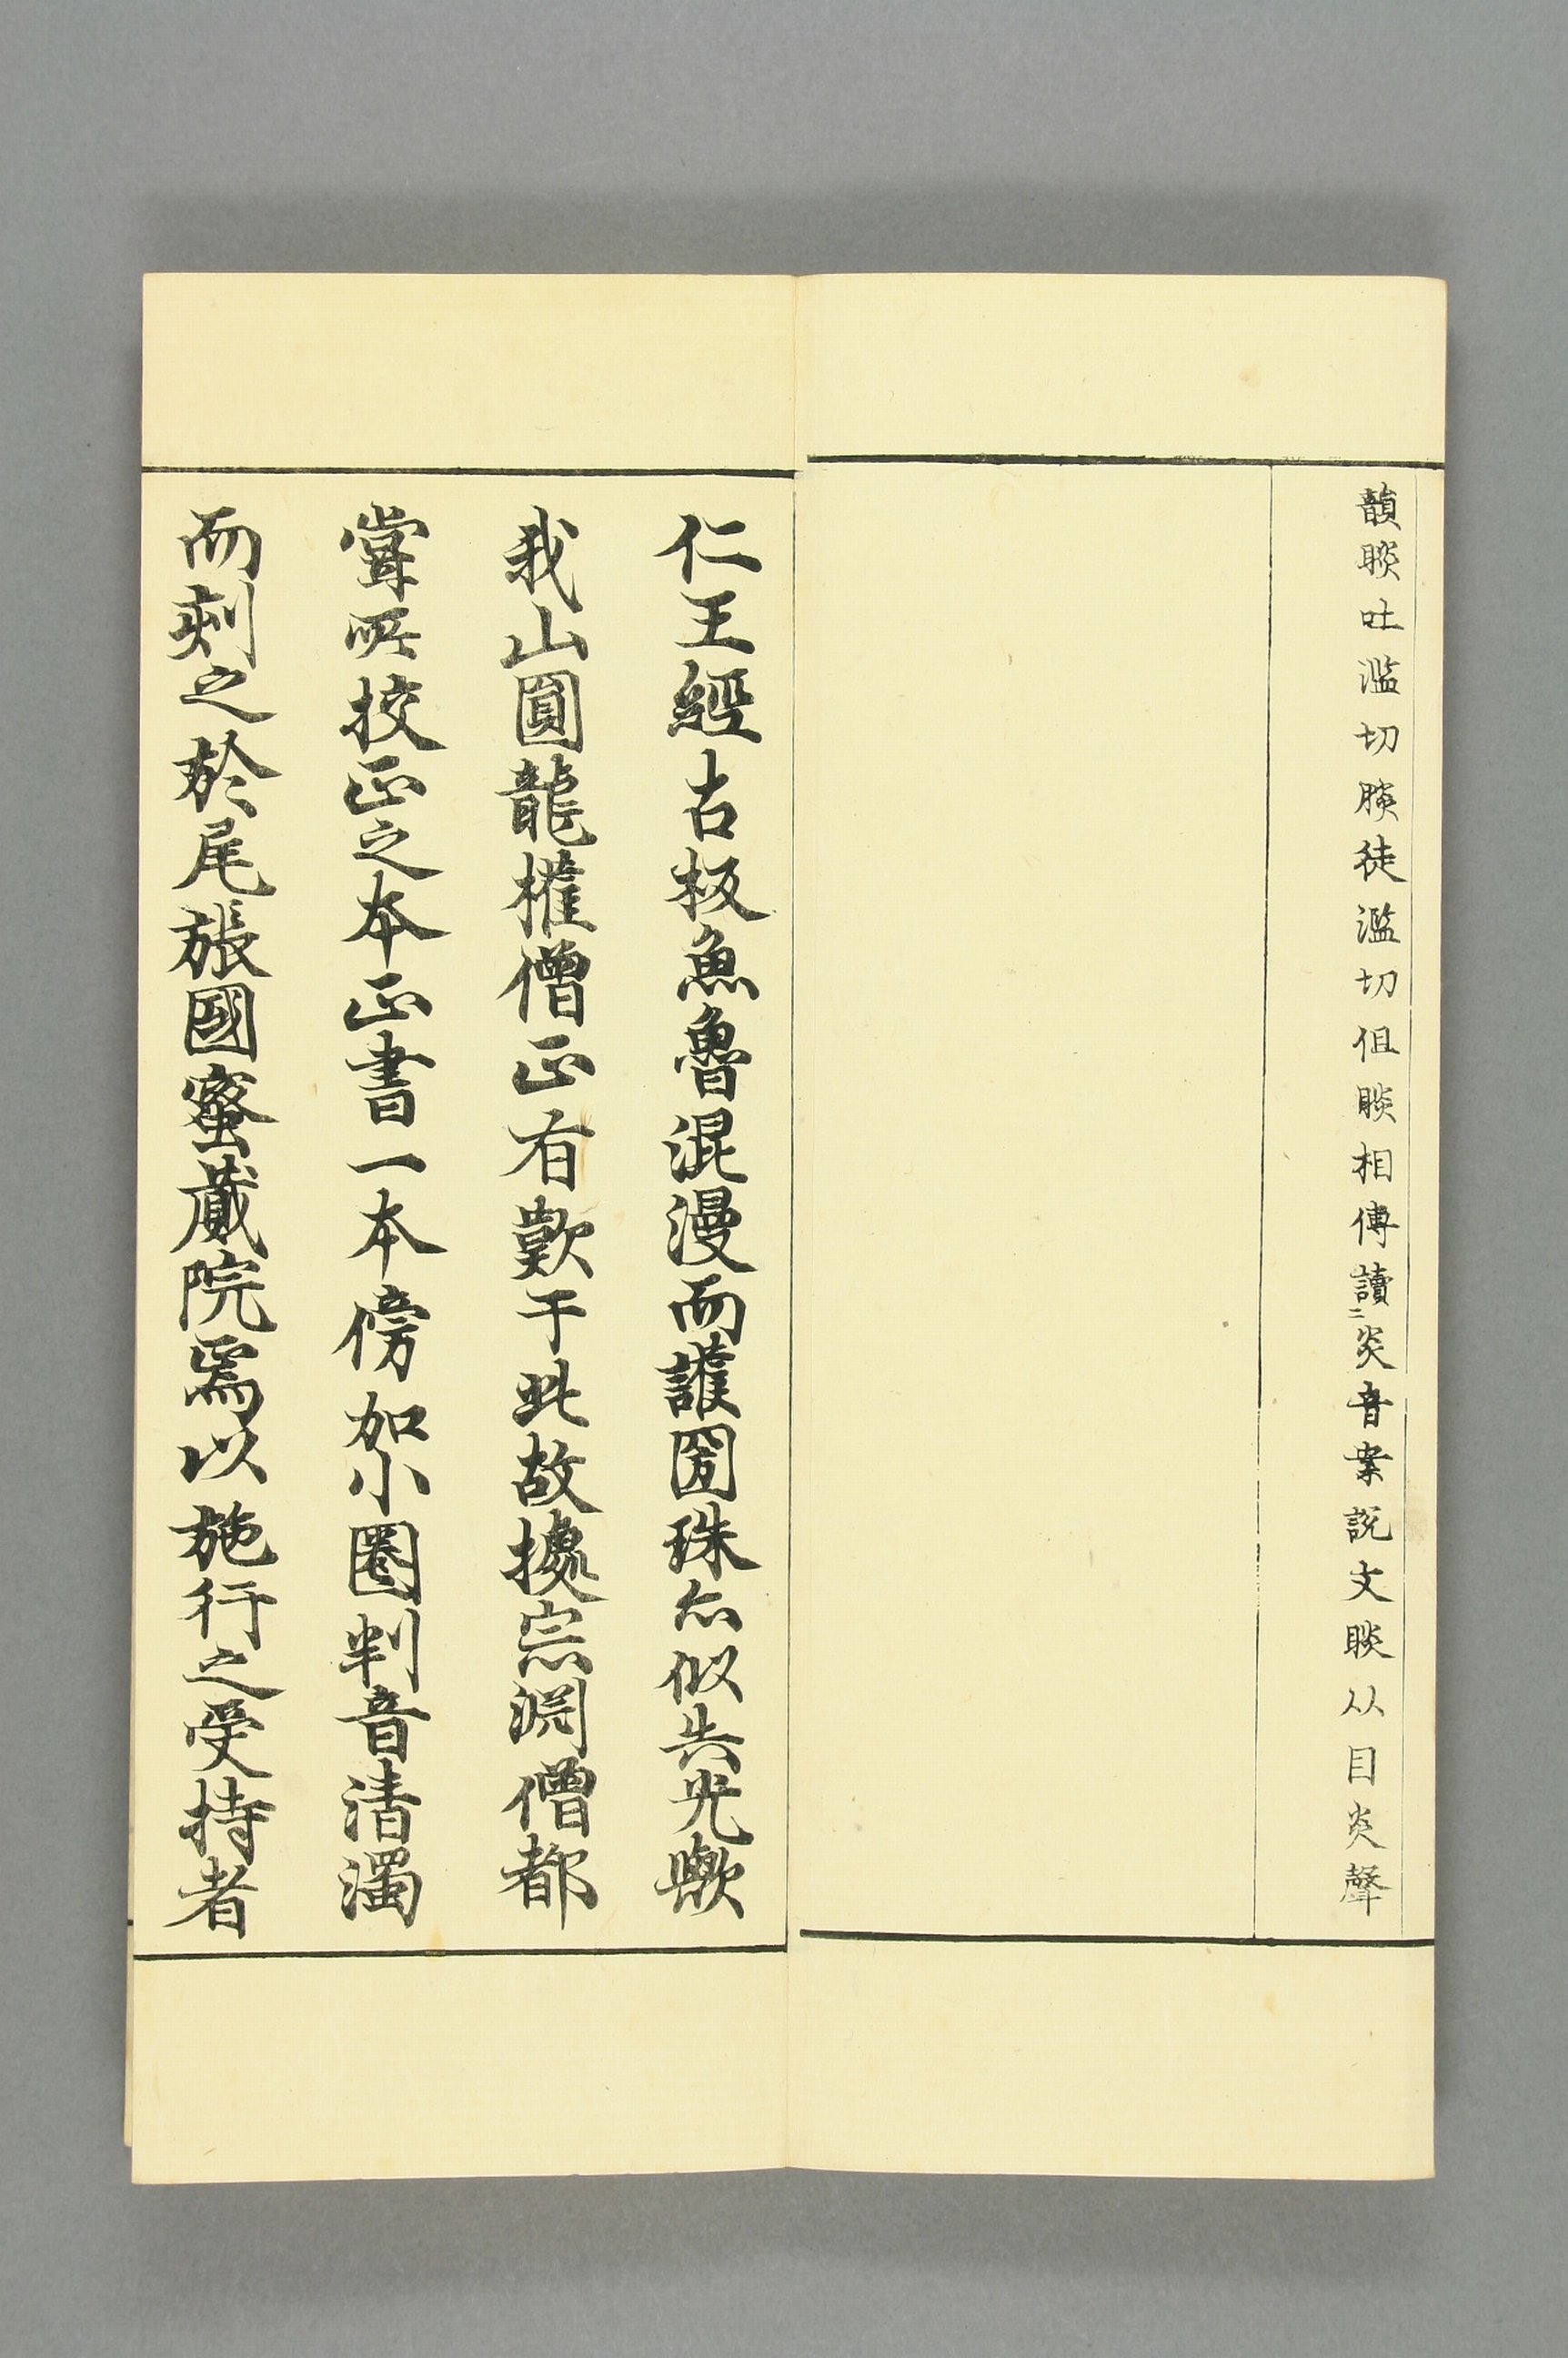 韻睒吐濫切賧徒濫切但睒相傳讀二炎音案説文睒从目炎聲
仁王經古板魚魯混漫而護國珠亦似失光歟
我山圓龍權僧正有歎于此故據宗淵僧都
嘗所挍正之本正書一本傍加小圈判音清濁
而刻之於尾張國蜜藏院焉以施行之受持者